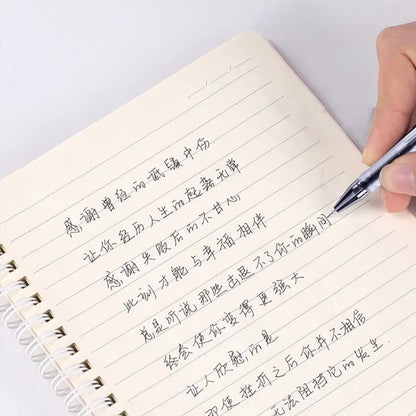 感谢曾经的诋毁中伤
让你经历人生的起落无常
感谢失败后的不甘心
此刻才能与幸福相伴
总是听说那些击退不了你的瞬间
终会使你变得更强大
让人欣慰的是
即使挫折之后你并不相信
无法阻挡它的发生